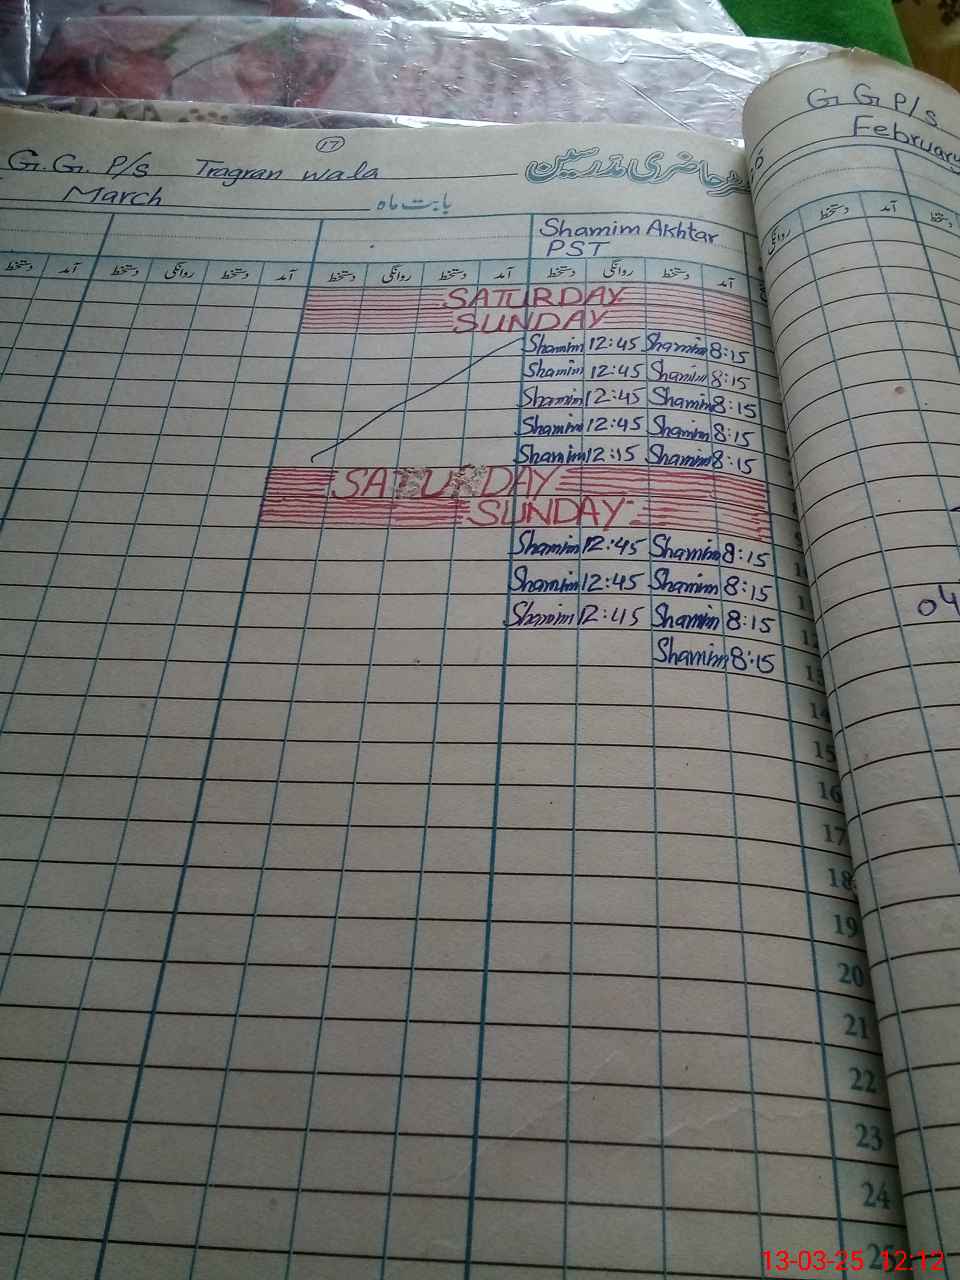 17
G.G. P/s Tragran wala
حاضری مدرسین
March
بابت ماہ
Shamim Akhtar
PST
دستخط آمد دستخط روانگی دستخط آمد دستخط روانگی دستخط آمد دستخط روانگی دستخط آمد
SATURDAY
SUNDAY
Shamim 12:45 Shamim 8:15
Shamim 12:45 Shamim 8:15
Shamim 12:45 Shamim 8:15
Shamim 12:45 Shamim 8:15
Shamim 12:15 Shamim 8:15
SATURDAY
SUNDAY
Shamim 12:45 Shamim 8:15
Shamim 12:45 Shamim 8:15
Shamim 12:45 Shamim 8:15
Shamim 8:15
14
15
16
17
18
19
20
21
22
23
24
25
G G P/s
February
روانگی دستخط آمد دستخط
04
13-03-25 12:12